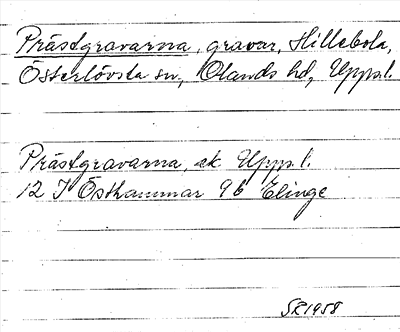 Prästgravarna, gravar, Hillebola,
Österlövsta sn, Olands hd, Upps.l.
Prästgravarna, ek. Upps.l.
12 I Östhammar 9b Elinge
SR 1958